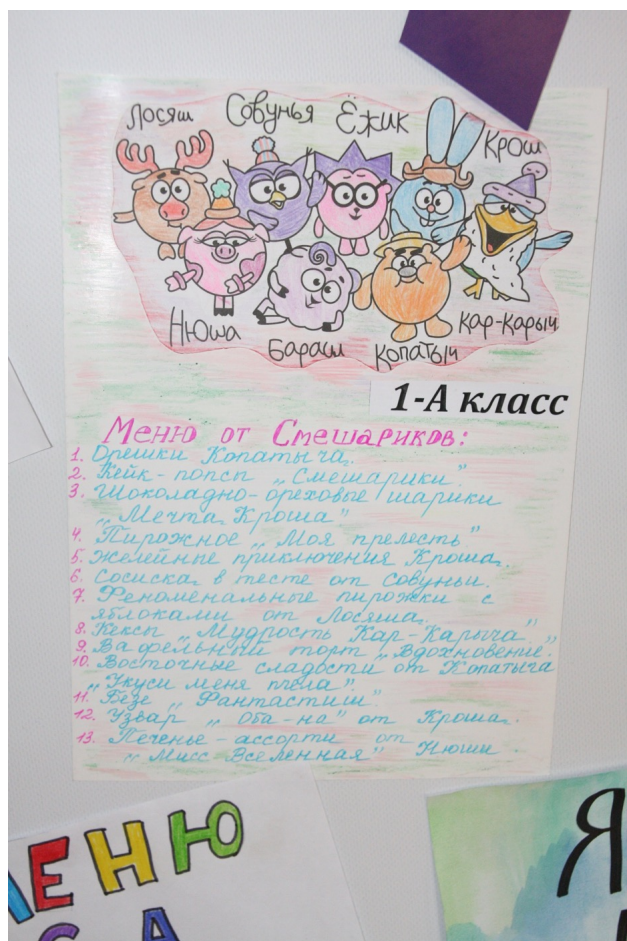 Лосяш
Совунья
Ёжик
Крош
Нюша
Бараш
Копатыч
Кар-Карыч
1-А класс
Меню от Смешариков:
1. Орешки Копатыча.
2. Кейк-попсы „Смешарики".
3. Шоколадно-ореховые шарики
„Мечта Кроша"
4. Пирожное „Моя прелесть"
5. Желейные приключения Кроша.
6. Сосиска в тесте от Совуньи.
7. Феноменальные пирожки с
яблоками от Лосяша.
8. Кексы „Мудрость Кар-Карыча"
9. Вафельный торт „Вдохновение."
10. Восточные сладости от Копатыча
„Укуси меня пчела".
11. Безе „Фантастиш".
12. Узвар „Оба-на" от Кроша.
13. Печенье-ассорти от Нюши
„Мисс-Вселенная"
МЕНЮ
Я